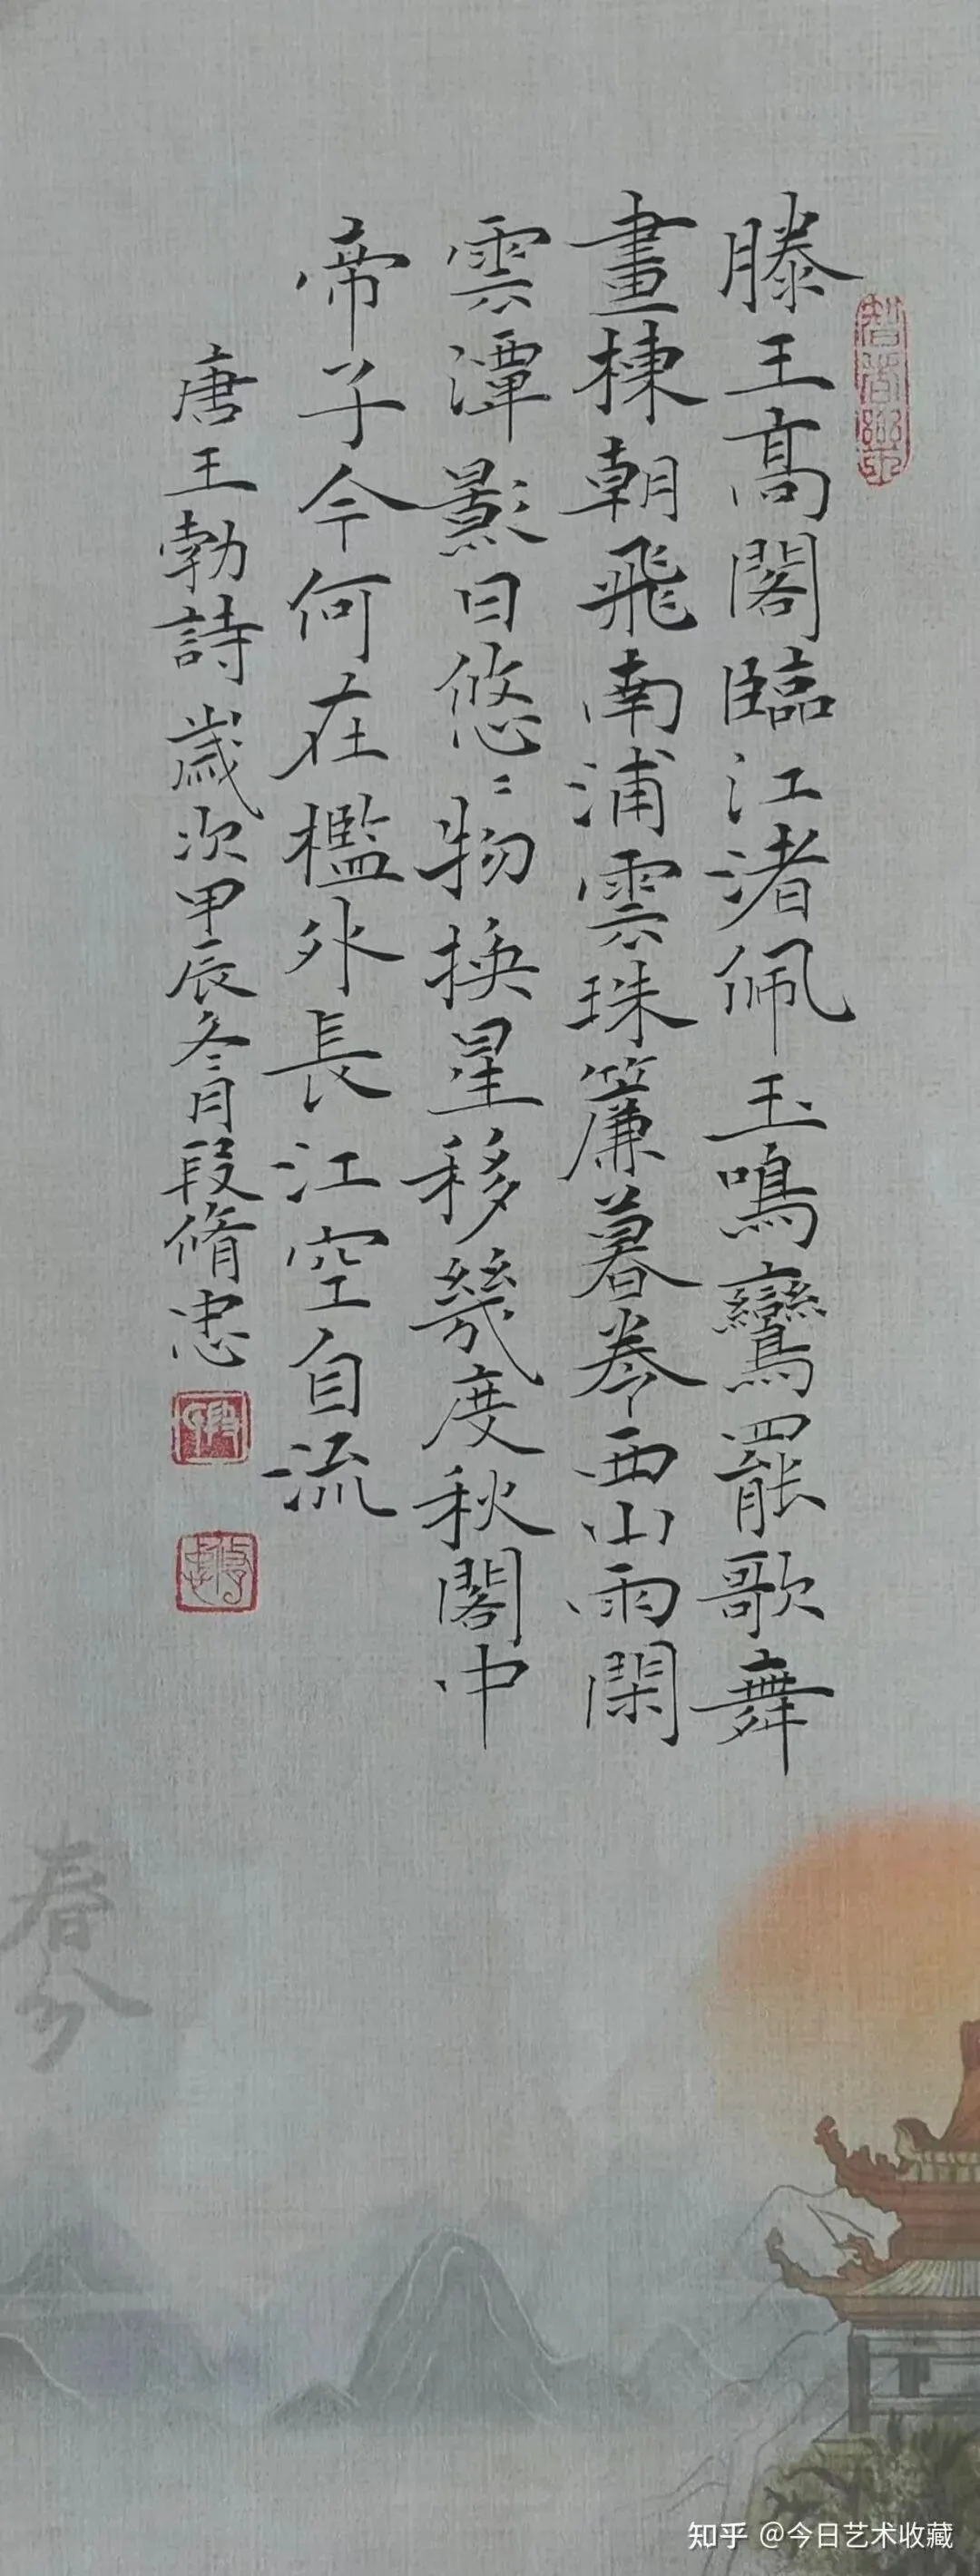 滕王高閣臨江渚佩玉鳴鸞罷歌舞
畫棟朝飛南浦雲珠簾暮捲西山雨閑
雲潭影日悠〻物換星移幾度秋閣中
帝子今何在檻外長江空自流
唐王勃詩歲次甲辰冬月段脩忠
春分
知乎 @今日艺术收藏